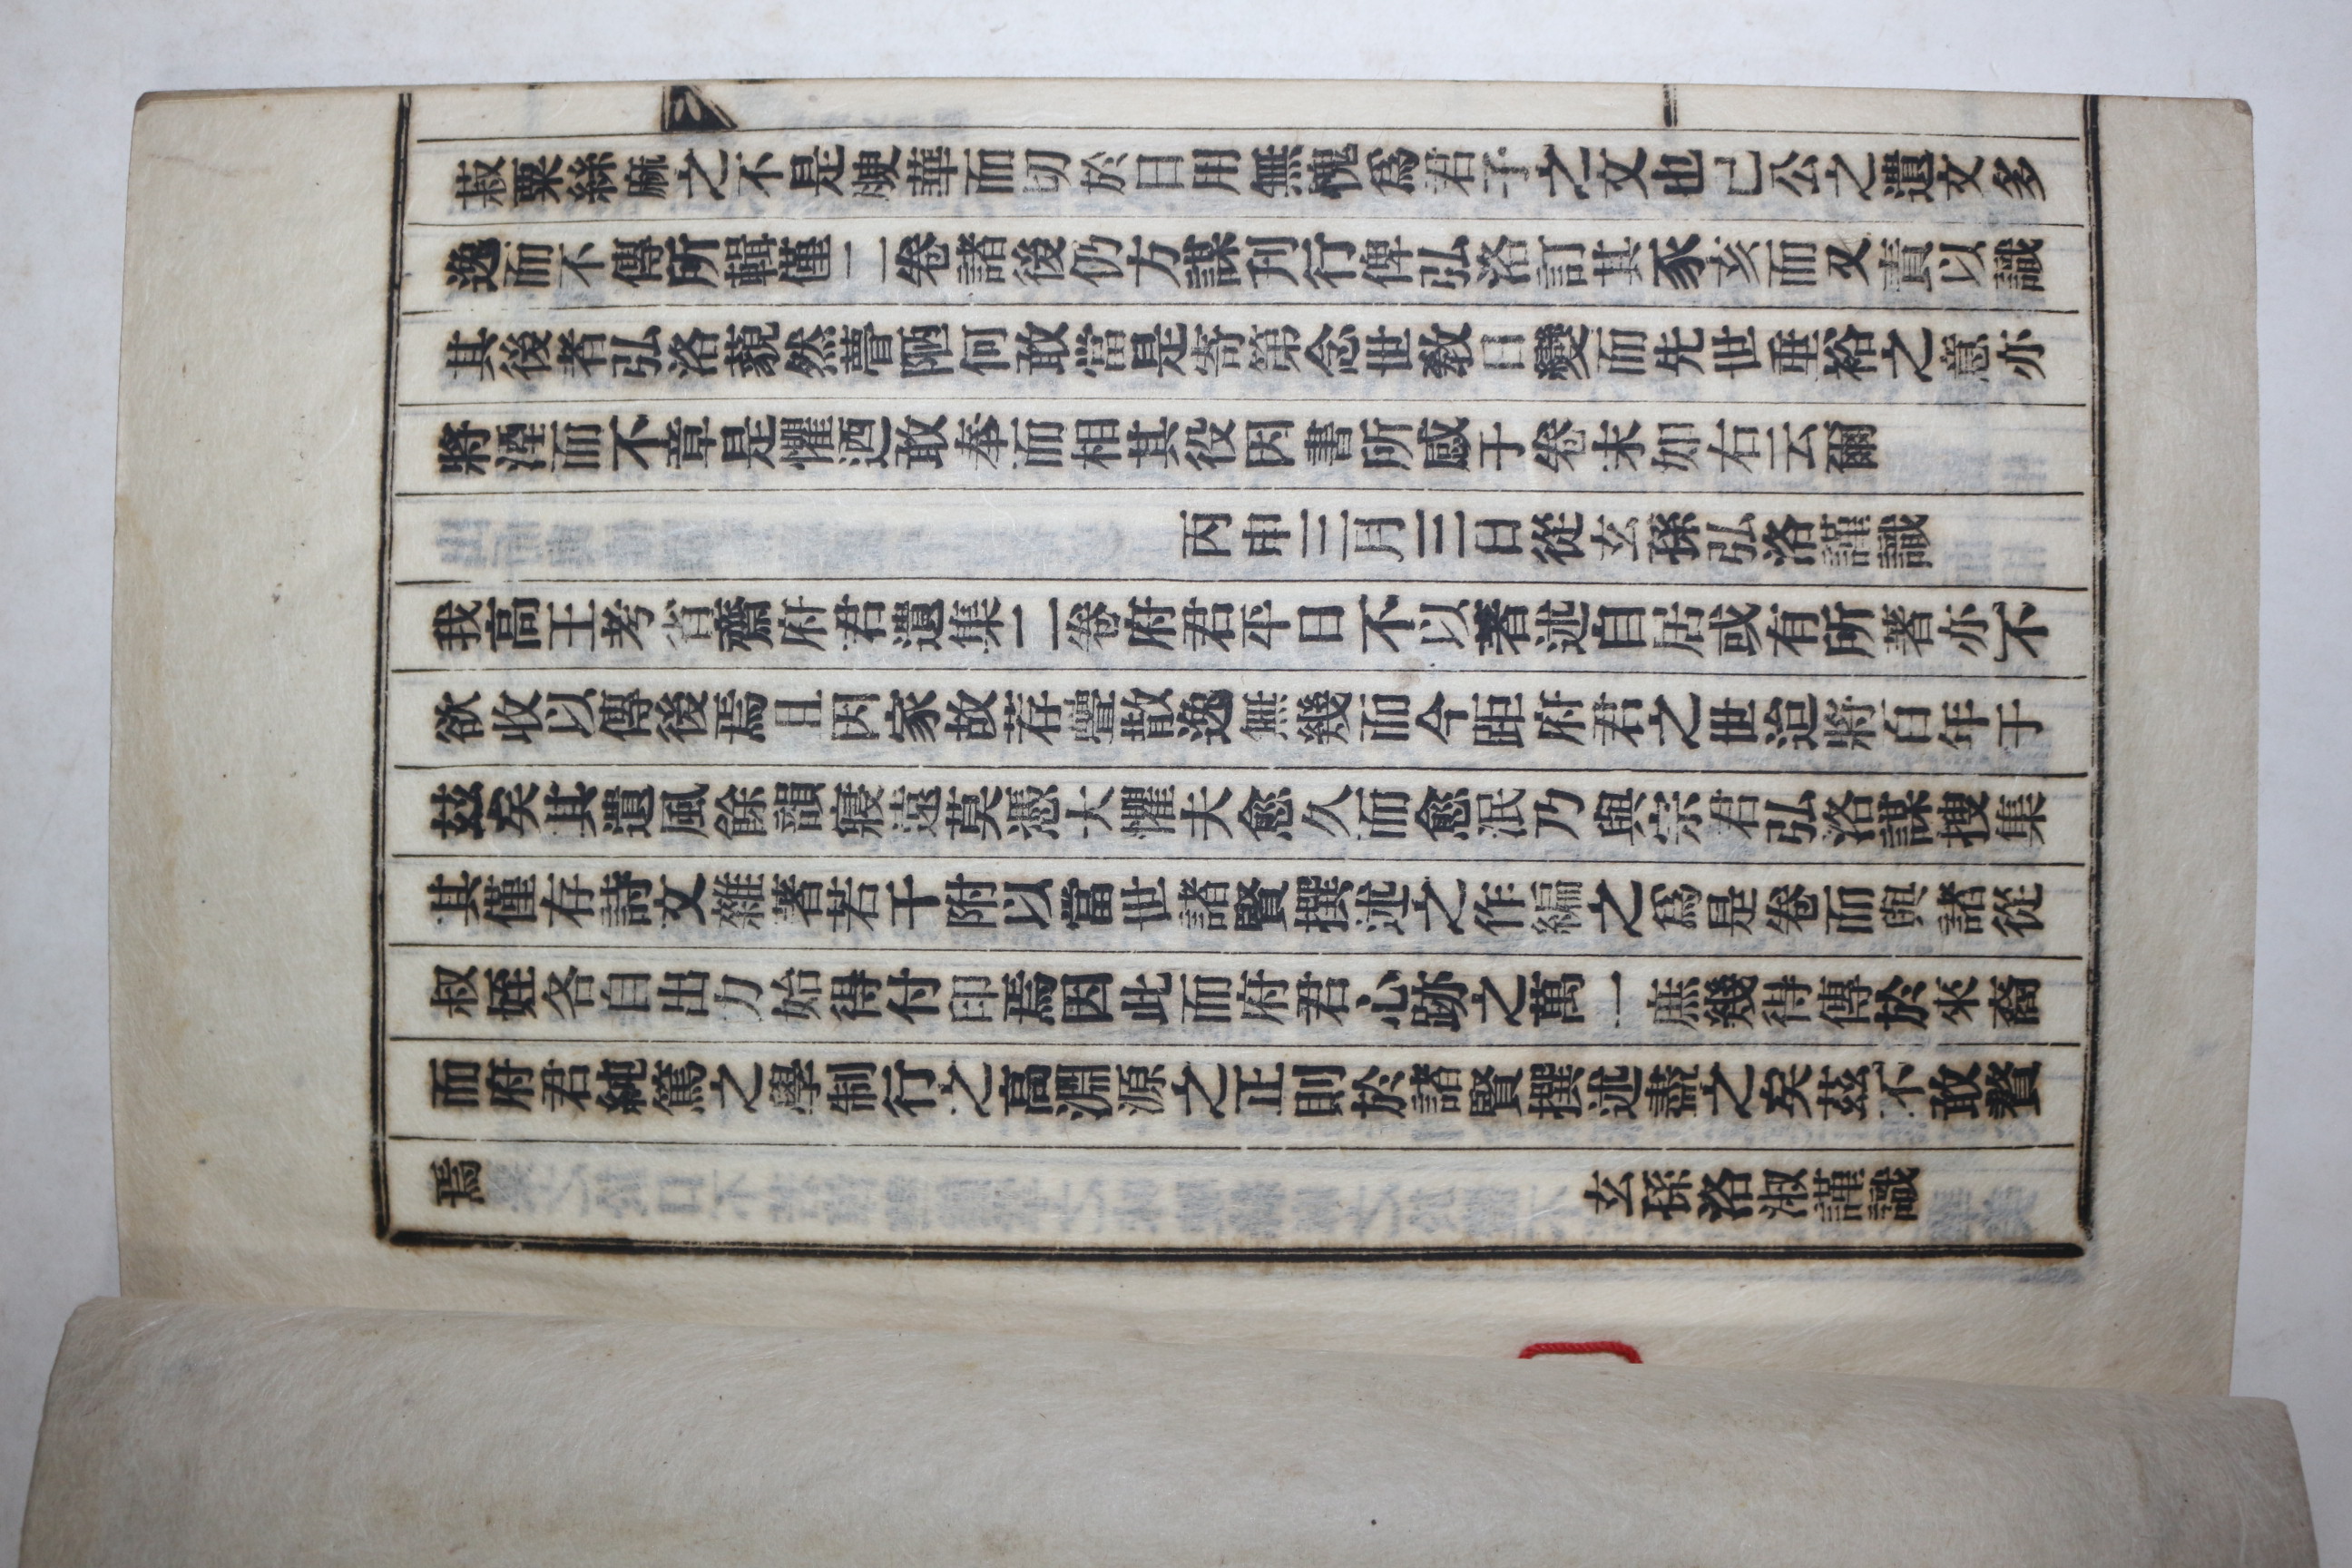 菽粟絲麻之不是浮華而切於日用無愧爲君子之文也已公之遺文多
逸而不傳所輯僅二卷諸後仍方謀刊行俾弘洛訂其豕亥而又責以識
其後者弘洛藐然瞢陋何敢當是寄第念世敎日變而先世垂裕之意亦
將湮而不章是懼迺敢奉而相其役因書所感于卷末如右云爾
丙申二月三日從玄孫弘洛謹識
我高王考省齋府君遺集二卷府君平日不以著述自居或有所著亦不
欲收以傳後焉且因家故荐疊散逸無幾而今距府君之世迨將百年于
玆矣其遺風餘韻寢遠莫憑大懼夫愈久而愈泯乃與宗君弘洛謀搜集
其僅存詩文雜著若干附以當世諸賢撰述之作編之爲是卷而與諸從
叔姪各自出力始得付印焉因此而府君心跡之萬一庶幾得傳於來裔
而府君純篤之學制行之高淵源之正則於諸賢撰述盡之矣玆不敢贅
焉 玄孫洛淑謹識